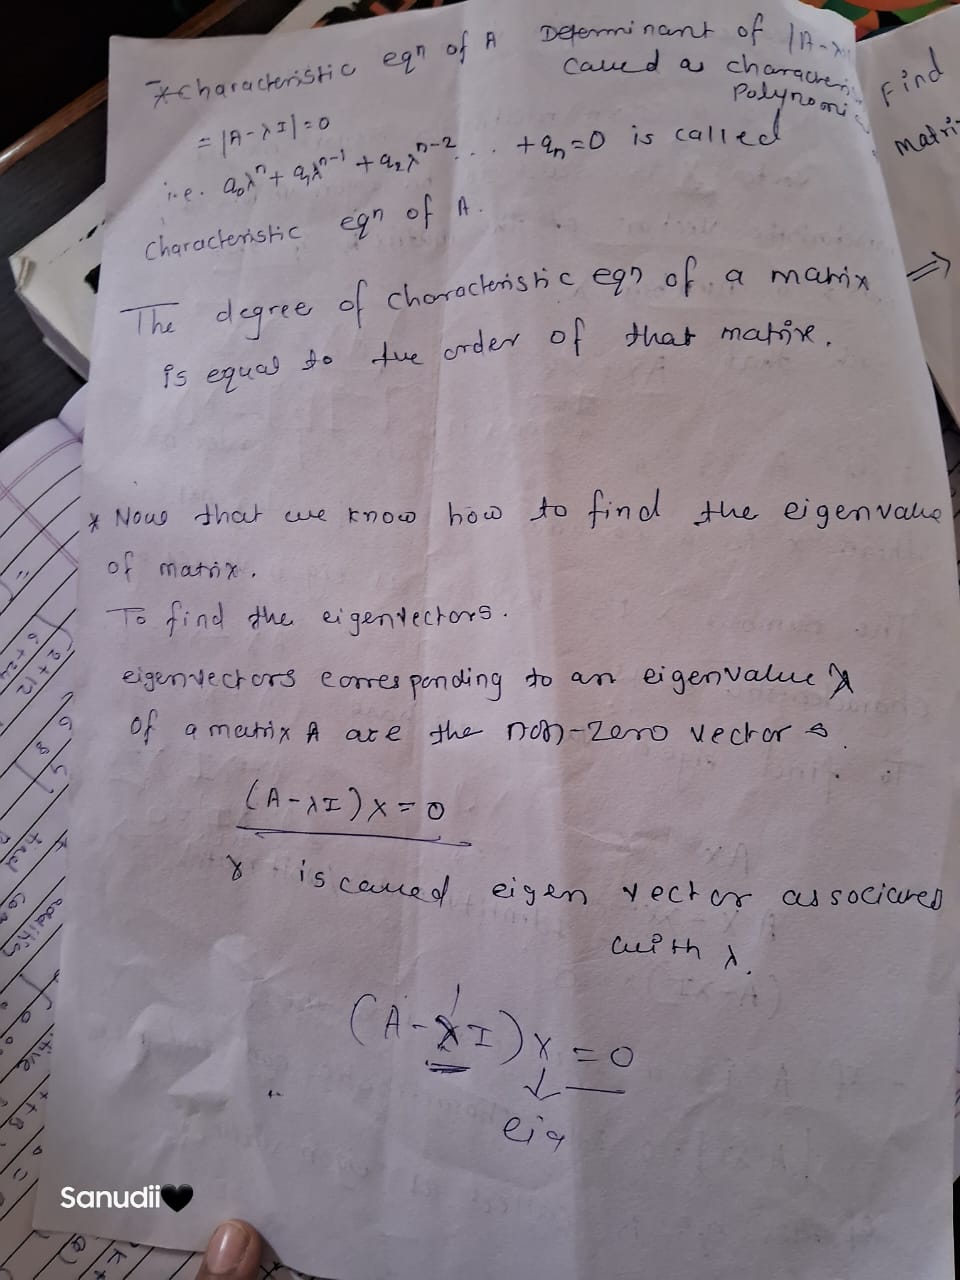 *Characteristic eqn of A
Determinant of |A-λ
called as characteris
Polynomi
= |A-λI|=0
i.e. a₀λⁿ + a₁λⁿ⁻¹ + a₂λⁿ⁻² ... + aₙ=0 is called
characteristic eqn of A.
The degree of characteristic eqn of a matrix
is equal to the order of that matrix.
* Now that we know how to find the eigenvalue
of matrix.
To find the eigenvectors.
eigenvectors corresponding to an eigenvalue λ
of a matrix A are the non-zero vectors.
(A-λI)x=0
x is called eigen vector associated
with λ.
(A-λI)x=0
↓
eig
Find
matri
⇒
Sanudii🖤